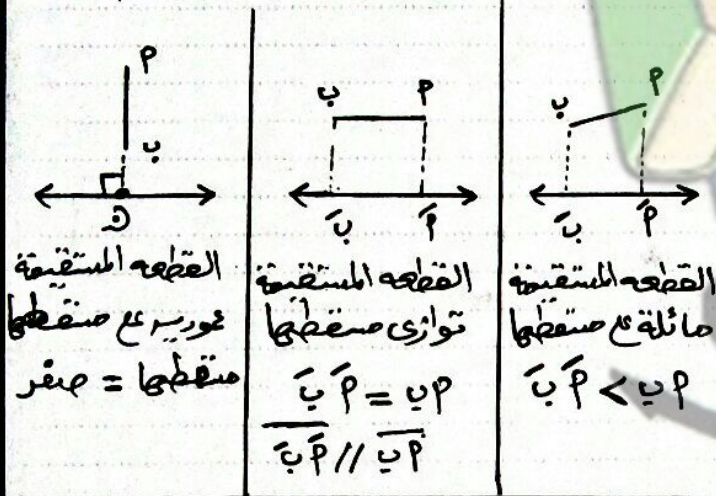 ب أ
بَ أَ
القطعه المستقيمة
مائلة على مسقطها
أب > أَبَ
ب أ
بَ أَ
القطعه المستقيمة
توازى مسقطها
أب = أَبَ
أب // أَبَ
أ
ب
القطعه المستقيمة
عموديه على مسقطها
مسقطها = صفر